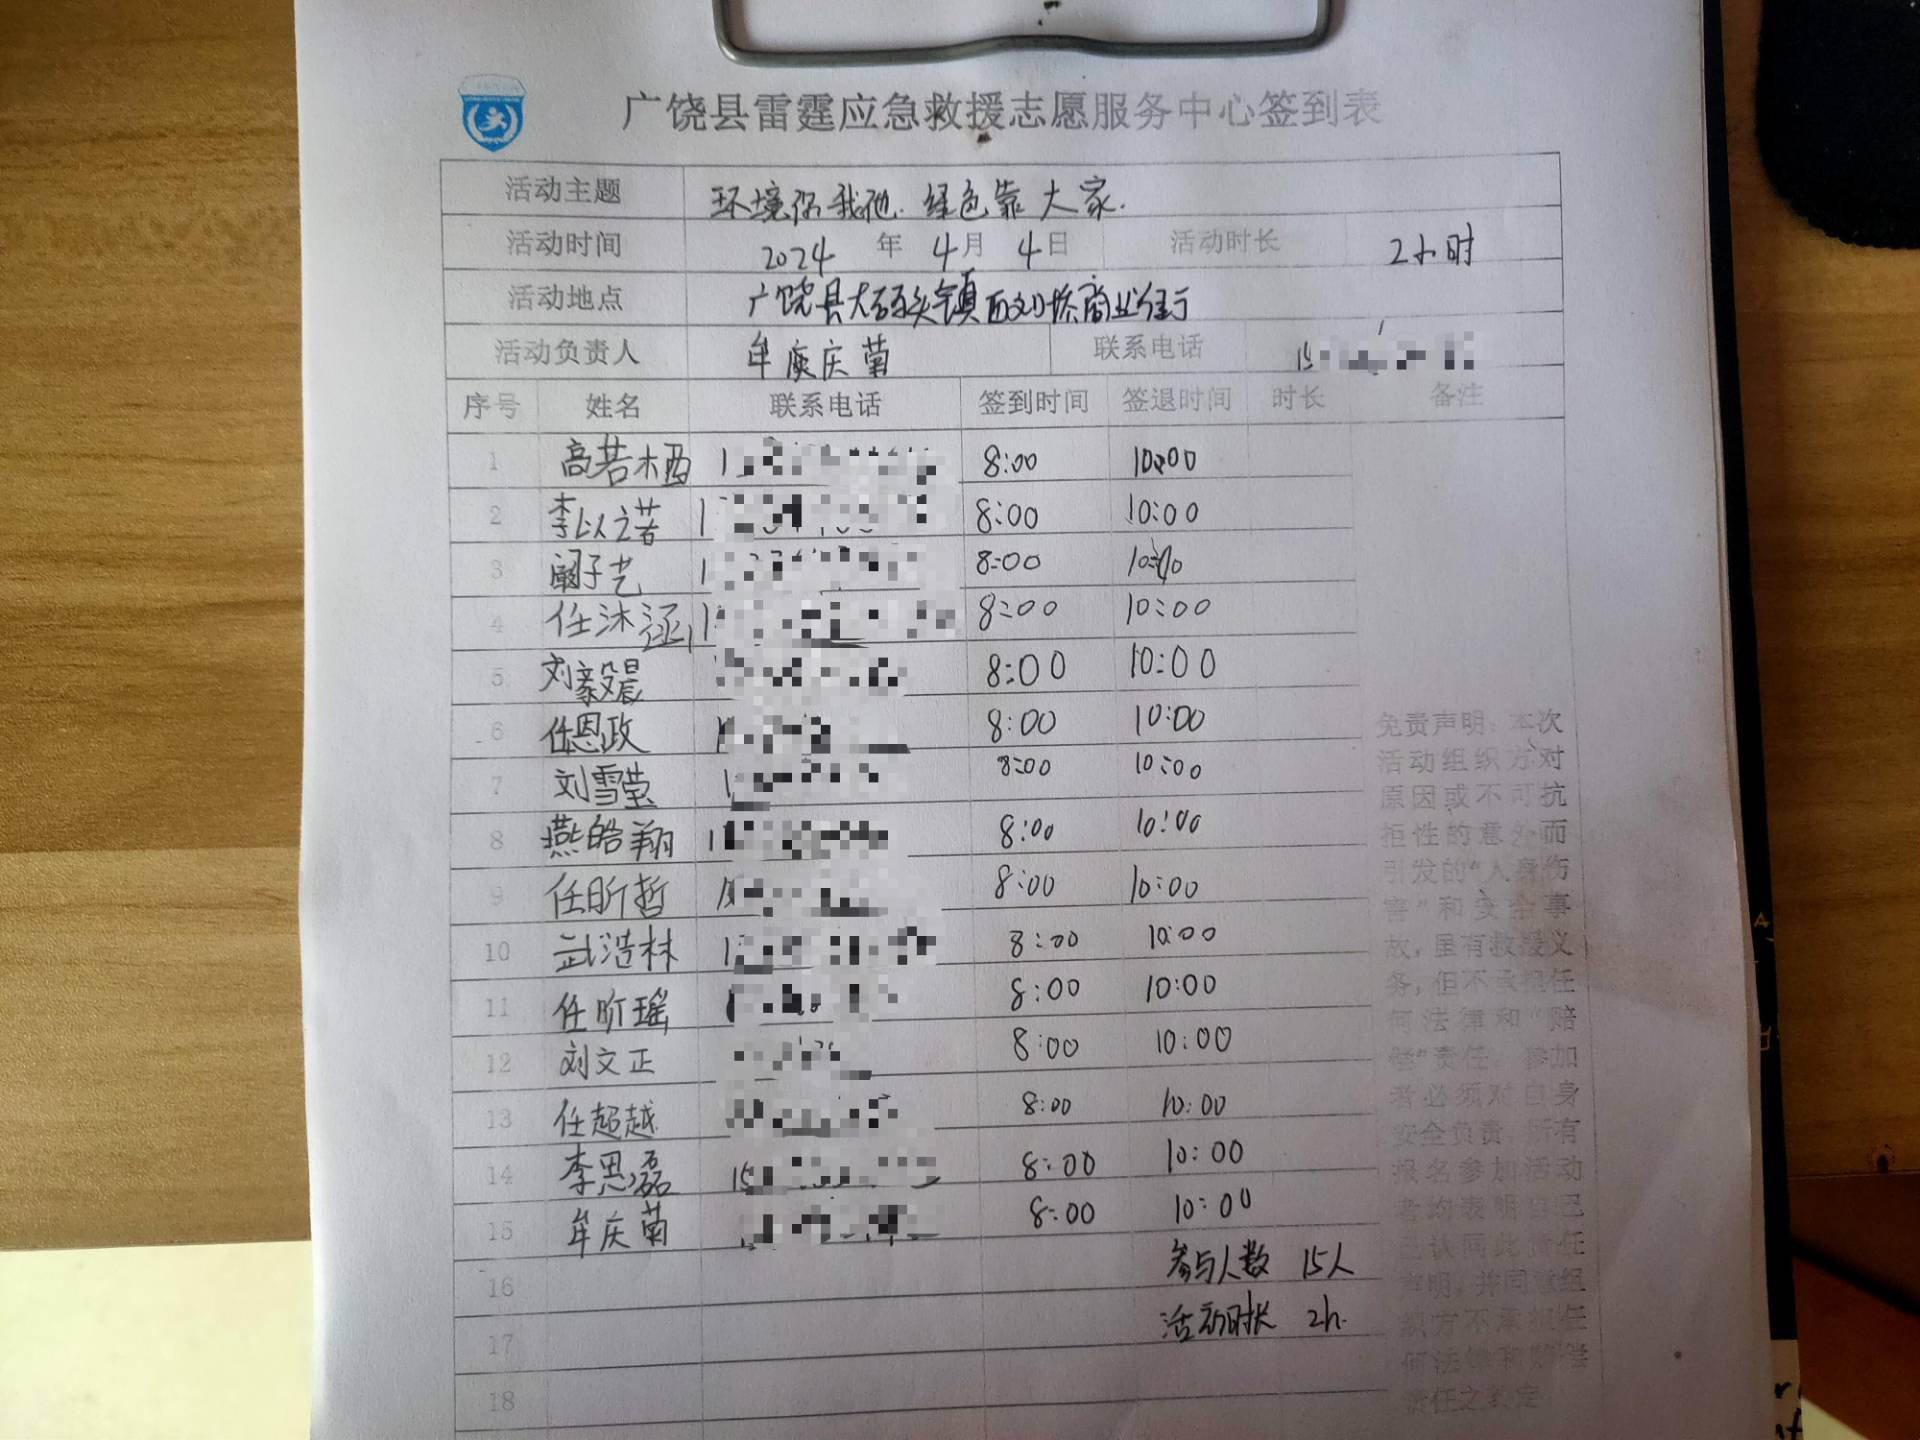 广饶县雷霆应急救援志愿服务中心签到表
活动主题 环境你我他. 绿色靠大家.
活动时间 2024 年 4月 4日 活动时长 2小时
活动地点 广饶县大码头镇西刘桥商业街
活动负责人 牟庆菊 联系电话 15
序号 姓名 联系电话 签到时间 签退时间 时长 备注
1 高若栖 1 8:00 10:00
2 李以诺 1 8:00 10:00
3 阚子艺 1 8:00 10:00
4 任沐涵 1 8:00 10:00
5 刘毅晨 8:00 10:00
6 任恩政 1 8:00 10:00
7 刘雪莹 1 8:00 10:00
8 燕皓翔 1 8:00 10:00
9 任昕哲 1 8:00 10:00
10 武浩林 1 8:00 10:00
11 任昕瑶 8:00 10:00
12 刘文正 8:00 10:00
13 任超越 8:00 10:00
14 李思磊 15 8:00 10:00
15 牟庆菊 8:00 10:00
16 参与人数 15人
17 活动时长 2h.
18
免责声明：本次
活动组织方对
原因或不可抗
拒性的意外而
引发的“人身伤
害”和安全事
故，虽有救援义
务，但不承担任
何法律和“赔
偿”责任。参加
者必须对自身
安全负责，所有
报名参加活动
者均表明自己
已认同此责任
声明，并同意组
织方不承担任
何法律和赔偿
责任之约定